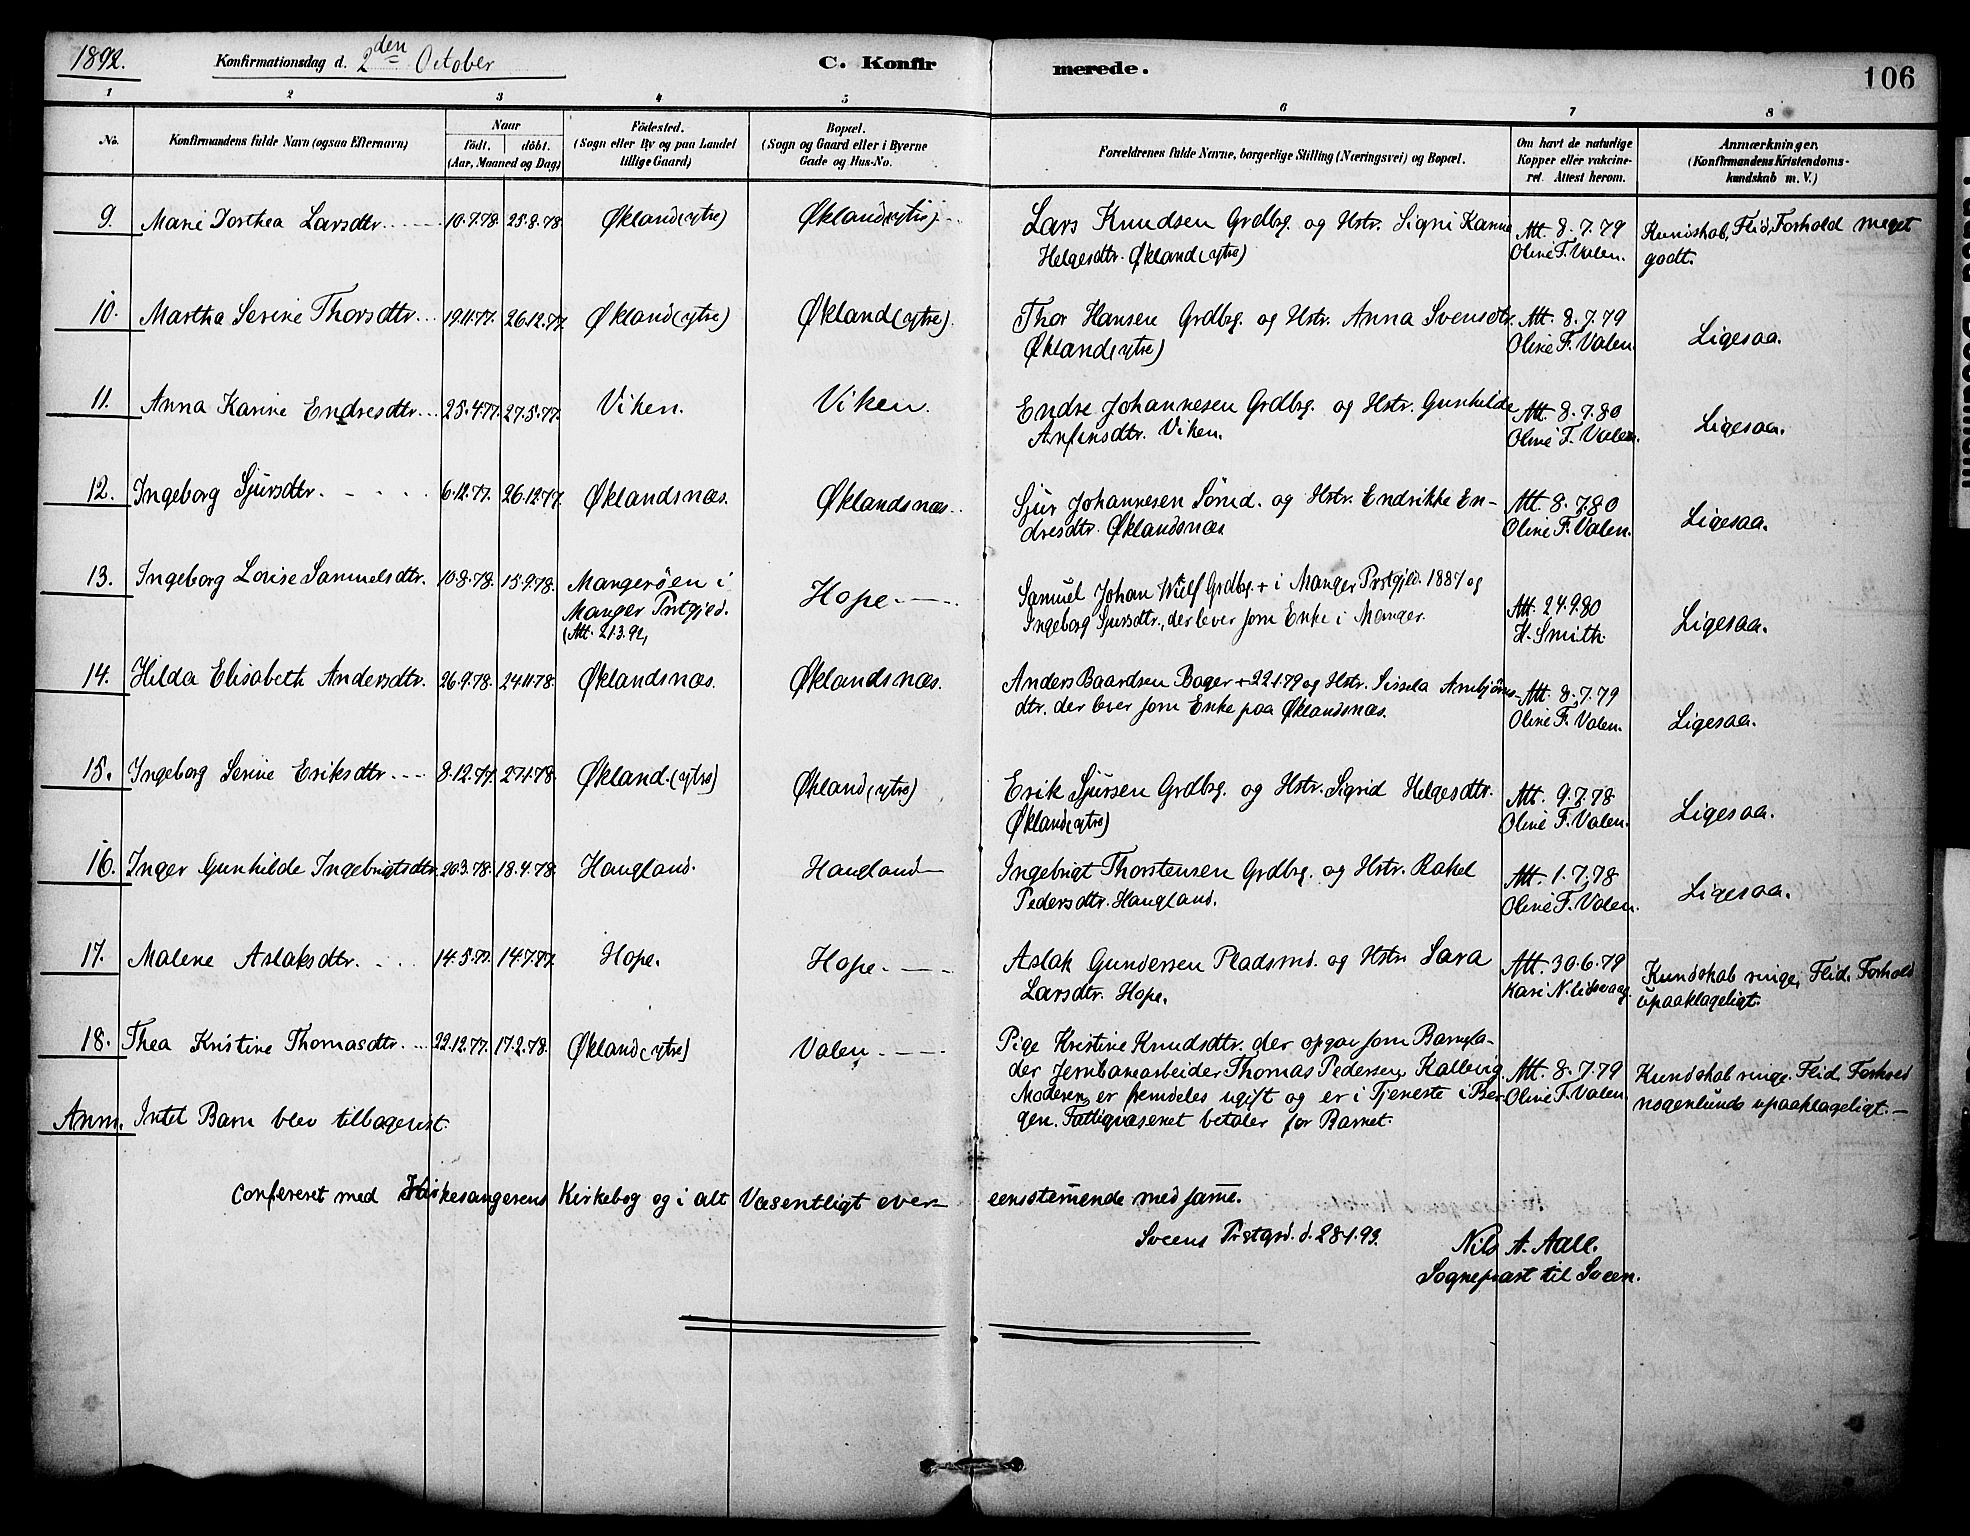 1892. Konfirmationsdag d. 2den October C. Konfirmerede. 106
1 2 3 4 5 6 7 8
No. Konfirmandens fulde Navn (ogsaa Efternavn) Naar født. døbt. (Aar, Maaned og Dag) Födested. (Sogn eller By og paa Landet tillige Gaard) Bopæl. (Sogn og Gaard eller i Byerne Gade og Hus-No. Forældrenes fulde Navne, borgerlige Stilling (Næringsvei) og Bopæl. Om havt de naturlige Kopper eller vakcineret. Attest herom. Anmærkninger. (Konfirmandens Kristendomskundskab m. V.)
9. Marie Dorthea Larsdtr. 10.7.78. 25.8.78. Økland (ytre) Økland (ytre) Lars Knudsen Grdbg. og Hstr. Signi Karine Att. 8.7.79 Kundskab, Flid, Forhold meget
Helgesdtr. Økland (ytre) Oline F. Valen. godt.
10. Martha Serine Thorsdtr. 19.11.77. 26.12.77. Økland (ytre) Økland (ytre). Thor Hansen Grdbg. og Hstr. Anna Svensdtr. Att. 8.7.79 Ligesaa.
Økland (ytre) Oline F. Valen.
11. Anna Karine Endresdtr. 25.4.77. 27.5.77. Viken. Viken. Endre Johannesen Grdbg. og Hstr. Gunhilde Att. 8.7.80 Ligesaa.
Anfinsdtr. Viken. Oline F. Valen.
12. Ingeborg Sjursdtr. 6.12.77. 26.12.77. Øklandsnæs. Øklandsnæs. Sjur Johannesen Strnd. og Hstr. Endrikke En- Att. 8.7.80 Ligesaa.
dresdtr. Øklandsnæs Oline F. Valen.
13. Ingeborg Lovise Samuelsdtr. 10.8.78. 15.9.78. Mangerøen i Hope. Samuel Johan Wulf Grdbg. + i Manger Prstgjeld. 1887 og Att. 24.9.80 Ligesaa.
Manger Prstgjeld. Ingeborg Sjursdtr., der lever som Enke i Manger. H. Smith.
(Att. 21.3.92)
14. Hilda Elisabeth Andersdtr. 26.9.78. 24.11.78. Øklandsnæs. Øklandsnæs. Anders Baardsen Bager + 22.1.79 og Hstr. Sissela Arnbjørns- Att. 8.7.79 Ligesaa.
dtr. der lever som Enke paa Øklandsnæs. Oline F. Valen.
15. Ingeborg Serine Eriksdtr. 8.12.77. 27.1.78. Økland (ytre) Økland (ytre) Erik Sjursen Grdbg. og Hstr. Sigrid Helgesdtr. Att. 9.7.78 Ligesaa.
Økland (ytre) Oline F. Valen.
16. Inger Gunhilde Ingebrigtsdtr. 20.3.78. 18.4.78. Haugland. Haugland Ingebrigt Thorstensen Grdbg. og Hstr. Rakel Att. 1.7.78 Ligesaa.
Pedersdtr. Haugland. Oline F. Valen.
17. Malene Aslaksdtr. 14.5.77. 14.7.77. Hope. Hope. Aslak Gundersen Pladsmd. og Hstr. Sara Att. 30.6.79 Kundskab ringe, Flid, Forhold
Larsdtr. Hope. Kari N. Eidsvaag. upaaklageligt.
18. Thea Kristine Thomasdtr. 22.12.77. 17.2.78. Økland (ytre) Valen. Pige Kristine Knudsdtr. der opgav som Barnefa-
der Jernbanearbeider Thomas Pedersen Kallevig. Att. 8.7.79 Kundskab ringe. Flid, Forhold
Moderen er fremdeles ugift og er i Tjeneste i Ber- Oline F. Valen nogenlunde upaaklageligt.
gen. Fattigvæsenet betaler for Barnet.
Anm. Intet Barn blev tilbagevist
Confereret med Kirkesangerens Kirkebog og i alt Væsentligt over- eensstemende med same.
Sveens Prstgrd. d. 28.1.93. Nils A. Aall.
Sognepræst til Sveen.